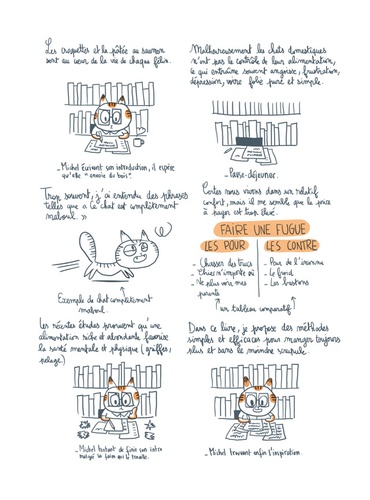 Les croquettes et la pâtée au saumon
sont au cœur de la vie de chaque félin.
_Michel écrivant son introduction, il espère
qu'elle "envoie du bois".
Trop souvent, j'ai entendu des phrases
telles que « Ce chat est complètement
maboul. »
Exemple de chat complètement
maboul.
Les récentes études prouvent qu'une
alimentation riche et abondante favorise
la santé mentale et physique (griffes,
pelage)
_Michel tentant de finir son intro
malgré la faim qui le tenaille.
Malheureusement les chats domestiques
n'ont pas le contrôle de leur alimentation,
ce qui entraîne souvent angoisse, frustration,
dépression, voire folie pure et simple.
_Pause-déjeuner.
Certes nous vivons dans un relatif
confort, mais il me semble que le prix
à payer est trop élevé.
FAIRE UNE FUGUE
LES POUR
LES CONTRE
- Chasser des trucs
- Chier n'importe où
- Ne plus voir mes
parents
- Pas de
- Le froid
- Les
un tableau comparatif
Dans ce livre, je propose des méthodes
simples et efficaces pour manger toujours
plus et sans le moindre scrupule.
_Michel trouvant enfin l'inspiration.